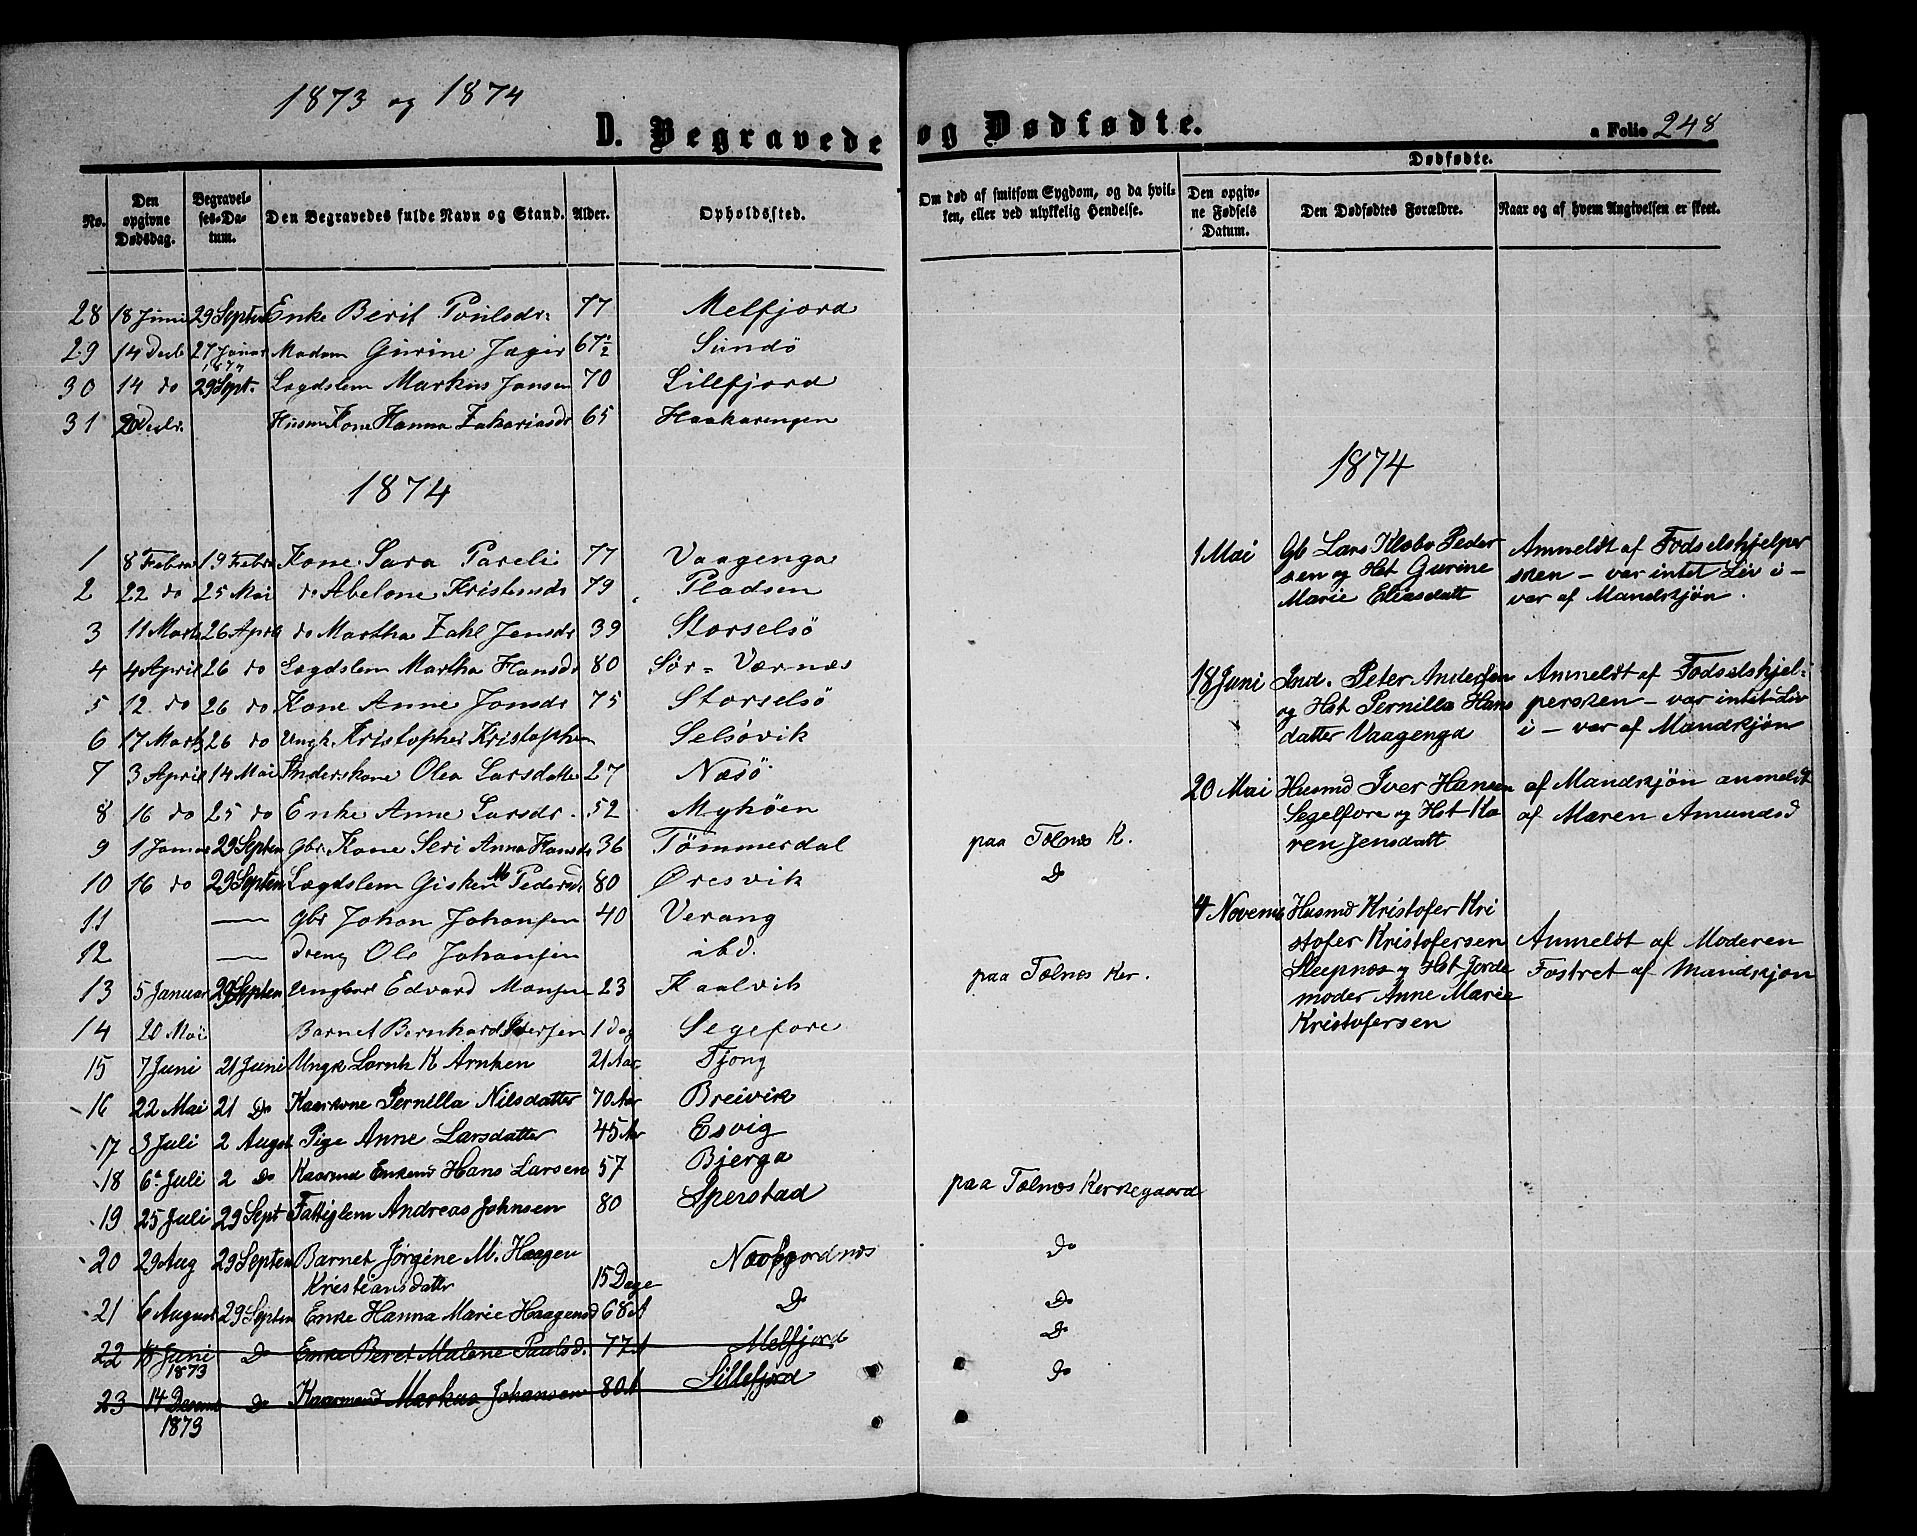 1873 og 1874
D. Begravede og Dødfødte.
a Folio 248
No.
Den opgivne Dødsdag.
Begravel-ses-Da-tum.
Den Begravedes fulde Navn og Stand.
Alder.
Opholdssted.
Om død af smitsom Sygdom, og da hvil-ken, eller ved ulykkelig Hendelse.
Dødfødte.
Den opgiv-ne Fødsels Datum.
Den Dødfødtes Forældre.
Naar og af hvem Angivelsen er skeet.
28 18 Juni 29 Septen Enke Berit Poulsdr. 77 Melfjord
29 14 Decb 27 Januar 1874 Madam Gurine Jæger 67½ Sundö
30 14 do 29 Sept. Lægdslem Markus Jansen 70 Lillefjord
31 Decbr. Husm Kone Hanna Zakariasdr 65 Haakaringen
1874
1 8 Febru 19 Febru Kone Sara Pareli 77 Vaagenga
2 22 do 25 Mai do Abelone Kristensdr 79 Pladsen
3 11 Marts 26 April do Martha Zahl Jensdr 39 Storselsö
4 4 April 26 do Lægdslem Martha Hansdr 80 Sør-Værnæs
5 12 do 26 do Kone Anne Jonsdr 75 Storselsö
6 17 Marts 26 do Ungk. Kristopher Kristophersen Selsövik
7 3 April 14 Mai Inderskone Olea Larsdatter 27 Næsö
8 16 do 25 do Enke Anne Larsdr. 52 Myköen
9 1 Januar 29 Septen Gbr. Kone Seri Anna Hansdr 36 Tömmerdal paa Tolnæs K.
10 16 do 29 Septen Lægdslem Gisken M Pedersd 80 Øresvik Do
11 — Gbr Johan Johansen 40 Verang
12 — Dreng Ole Johansen ibd.
13 5 Januar 29 Septen Ungkar Edvard Monsen 23 Kaalvik paa Tolnæs Ker.
14 20 Mai Barnet Bernhard Iversen 1 Dag Segefore
15 7 Juni 21 Juni Ungk K Arntzen 21 Aar Tjong
16 22 Mai 21 Do Kaarkone Pernilla Nilsdatter 70 Aar Breivik
17 3 Juli 2 August Pige Anne Larsdatter 45 Ar Esvig
18 6 Juli 2 Do Kaarmd Enkemd Hans Larsen 57 Bjerga
19 25 Juli 29 Sept Fattiglem Andreas Johnsen 80 Sperstad paa Tolnæs Kerkegaard
20 29 Aug 29 Septen Barnet Jørgine M. Haagen
Kristiansdatter 15 Dage Næverjordnæs Do
21 6 August 29 Septen Enke Hanna Marie Haagensd 68 A Do Do
22 18 Juni 1873 Do Enke Beret Malene Paulsd. 77 A Melfjord Do
23 14 Decemb 1873 Do Kaarmand Markus Johansen 80 A Lillefjord Do
1874
1 Mai Gb Lars Klæbo Peder
sen og Hst Gurine
Marie Eliasdatt
Anmeldt af Fodselshjelper
sken - var intet Liv i -
var af Mandkjøn.
18 Juni Ind. Peter Andersen
og Hst Pernilla Hans
datter Vaagenga
Anmeldt af Fodselshjel-
persken - var intet Liv
i - var af Mandkjøn
20 Mai Husmd Iver Hansen
Segelfore og Hst Ka
ren Jensdatt
af Mandkjøn anmeldt
af Maren Amundsd
4 Novemb Husmd Kristofer Kri
stofer Kristofersen
Sleepnæs og Hst Jorde
moder Anne Marie
Kristofersen
Anmeldt af Moderen
Fostret af Mandkjøn